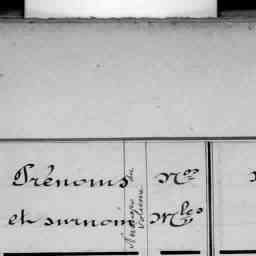 Prénoms
et surnoms
Numéros du
Volume
Nos
Mles